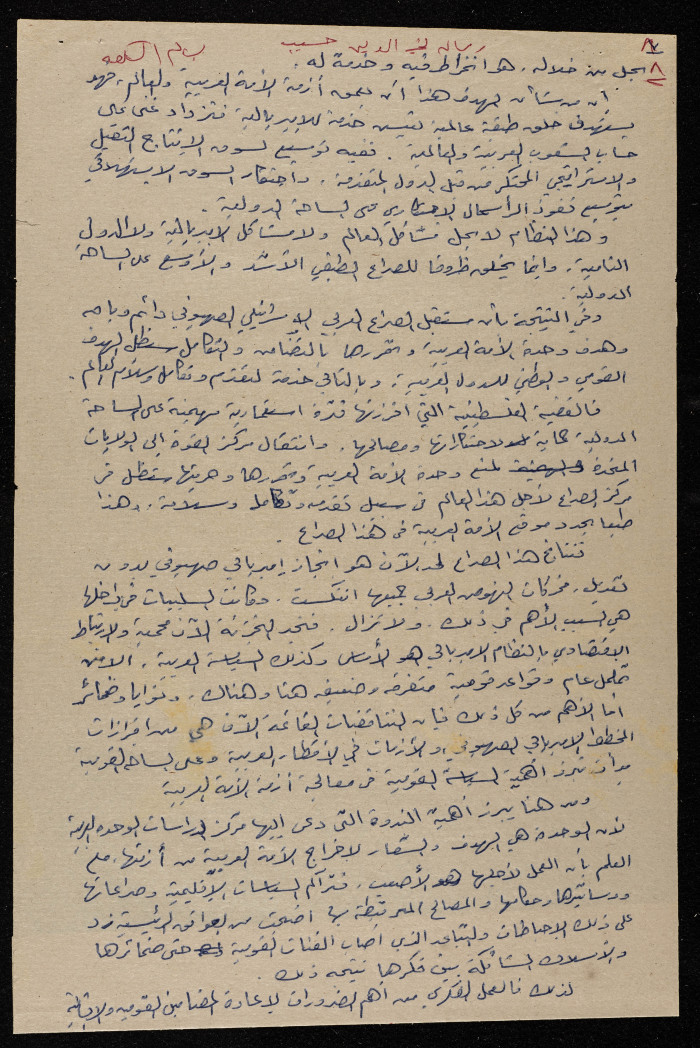 رسالة خير الدين حسيب
٨
الحل من خلاله، هو انخراط فيه وخدمة له.
إن من شأن الهدف هذا أن يعمق أزمة الأمة العربية والعالم، فهو
يستهدف خلق طبقة عالمية لتيسير خدمة للامبريالية فتزداد غنى على
حساب الشعوب العربية والعالمية. ففيه توسيع لسوق الإنتاج الثقيل
والاستراتيجي المحتكر من قبل الدول المتقدمة. واحتكار السوق الاستهلاكي
بتوسيع نفوذ الرأسمال الاحتكاري على الساحة الدولية.
وهذا النظام لا يحل مشاكل العالم ولا مشاكل الامبريالية ولا الدول
النامية. وإنما يخلق ظروفا للصراع الطبقي الأشد والأوسع على الساحة
الدولية.
وفي النتيجة بأن مستقبل الصراع العربي الإسرائيلي الصهيوني دائم وباق
وهدف وحدة الأمة العربية وتحررها بالتضامن والتكامل ستظل الهدف
القومي والوطني للدول العربية. وبالتالي خدمة لتقدم وتكامل وسلام العالم.
فالقضية الفلسطينية التي افرزتها فترة استعمارية مهيمنة على الساحة
الدولية حماية لاحتكاراتها ومصالحها. وانتقال مركز القوة إلى الولايات
المتحدة لمنع وحدة الأمة العربية وتحررها وحريتها ستظل في
مركز الصراع لأجل هذا العالم في سبيل تقدمه وتكامله وسلامه. وهذا
طبعا يحدد موقع الأمة العربية في هذا الصراع.
فنتائج هذا الصراع لحد الآن هو انجاز امبريالي صهيوني بدون
تعديل. فحركات النهوض العربي جميعها انتكست. وكانت السلبيات في داخلها
هي السبب الأهم في ذلك. ولا تزال. فنجد التجزئة الآن محمية والارتباط
الاقتصادي بالنظام الامبريالي هو الأساس وكذلك السياسة العربية. الا من
تململ عام وقواعد قومية متفرقة وضعيفة هنا وهناك. ونوايا وضمائر
اما الأهم من كل ذلك فإن التناقضات القائمة الآن هي من افرازات
المخطط الامبريالي الصهيوني والأزمات في الأقطار العربية وعلى الساحة القومية
بدأت تبرز أهمية السياسة القومية في معالجة أزمة الأمة العربية
ومن هنا يبرز أهمية الندوة التي دعى إليها مركز دراسات الوحدة العربية
لأن الوحدة هي الهدف والشعار لاخراج الأمة العربية من أزمتها، مع
العلم بأن العمل لأجلها هو الأصعب. فتراكم السياسات الإقليمية وصراعاتها
ودساتيرها وحكامها والمصالح المرتبطة بها أضحت من العوائق الرئيسية زد
على ذلك الاحباطات والتباعد الذي أصاب الفئات القومية حتى ضمائرها
والأسلاك الشائكة بين فكرها نتيجة ذلك.
لذلك فالعمل الفكري من أهم الضرورات لإعادة المضامين القومية والإنسانية